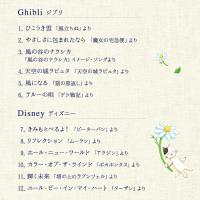 Ghibli ジブリ
1. ひこうき雲 「風立ちぬ」より
2. やさしさに包まれたなら 「魔女の宅急便」より
3. 風の谷のナウシカ
「風の谷のナウシカ」イメージ・ソングより
4. 天空の城ラピュタ 「天空の城ラピュタ」より
5. 風になる 「猫の恩返し」より
6. テルーの唄 「ゲド戦記」より
Disney ディズニー
7. きみもとべるよ! 「ピーターパン」より
8. リフレクション 「ムーラン」より
9. ホール・ニュー・ワールド 「アラジン」より
10. カラー・オブ・ザ・ウインド 「ポカホンタス」より
11. 輝く未来 「塔の上のラプンツェル」より
12. ユール・ビー・イン・マイ・ハート 「ターザン」より